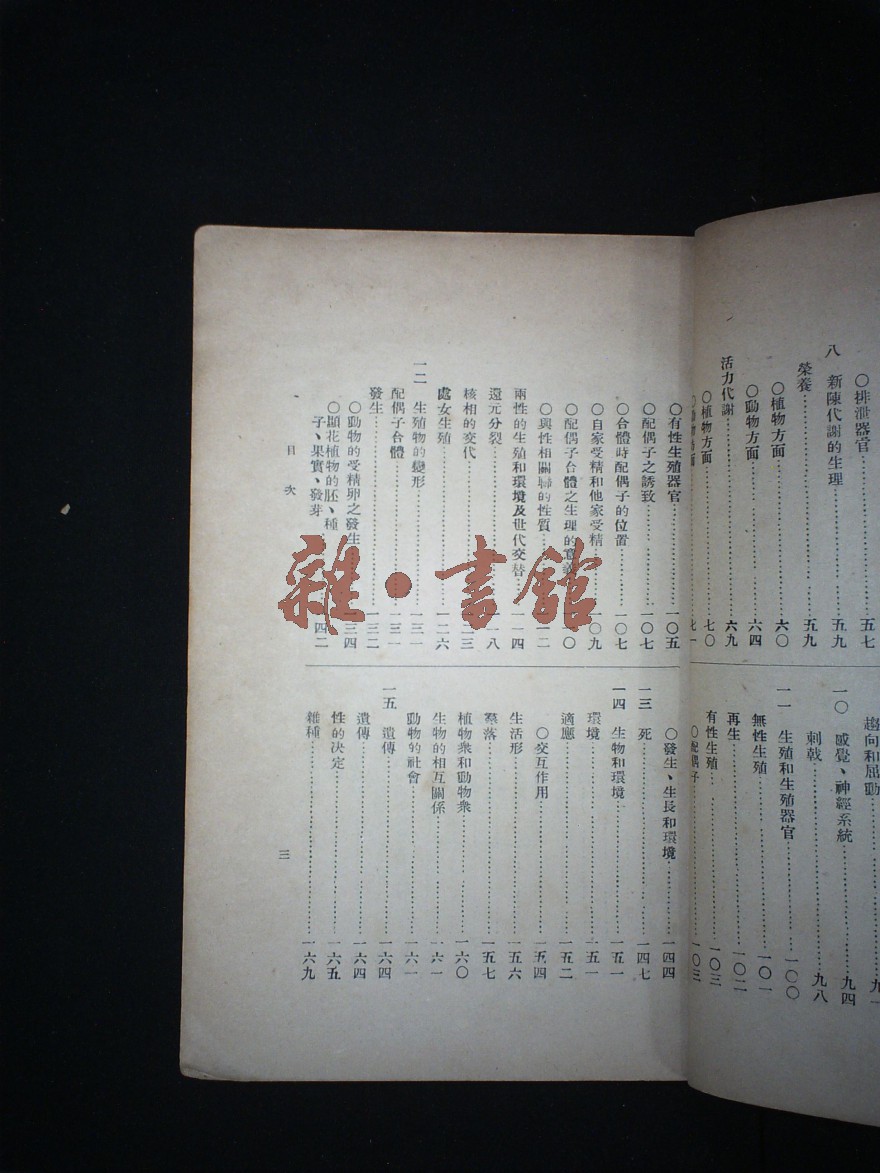 ○排泄器官……五七
八 新陳代謝的生理……五九
榮養……五九
○植物方面……六〇
○動物方面……六四
活力代謝……六九
○植物方面……七〇
○動物方面……七一
趨向和屈動……九一
一〇 感覺、神經系統……九四
刺戟……九八
一一 生殖和生殖器官……一〇〇
無性生殖……一〇一
再生……一〇二
有性生殖……一〇三
○配偶子……一〇三
○有性生殖器官……一〇五
○配偶子之誘致……一〇七
○合體時配偶子的位置……一〇七
○自家受精和他家受精……一〇九
○配偶子合體之生理的意義
○與性相關聯的性質
兩性的生殖和環境及世代交替……一一四
還元分裂
核相的交代
處女生殖……一二六
一二 生殖物的變形……一三一
配偶子合體……一三一
發生……一三二
○動物的受精卵之發生……一三四
○顯花植物的胚、種
子、果實、發芽
○發生、生長和環境……一四四
一三 死……一四七
一四 生物和環境……一五一
環境……一五一
適應……一五二
○交互作用……一五四
生活形……一五六
羣落……一五七
植物衆和動物衆……一六〇
生物的相互關係……一六一
動物的社會……一六一
一五 遺傳……一六四
遺傳……一六四
性的決定……一六五
雜種……一六九
目次
三
雜·書館